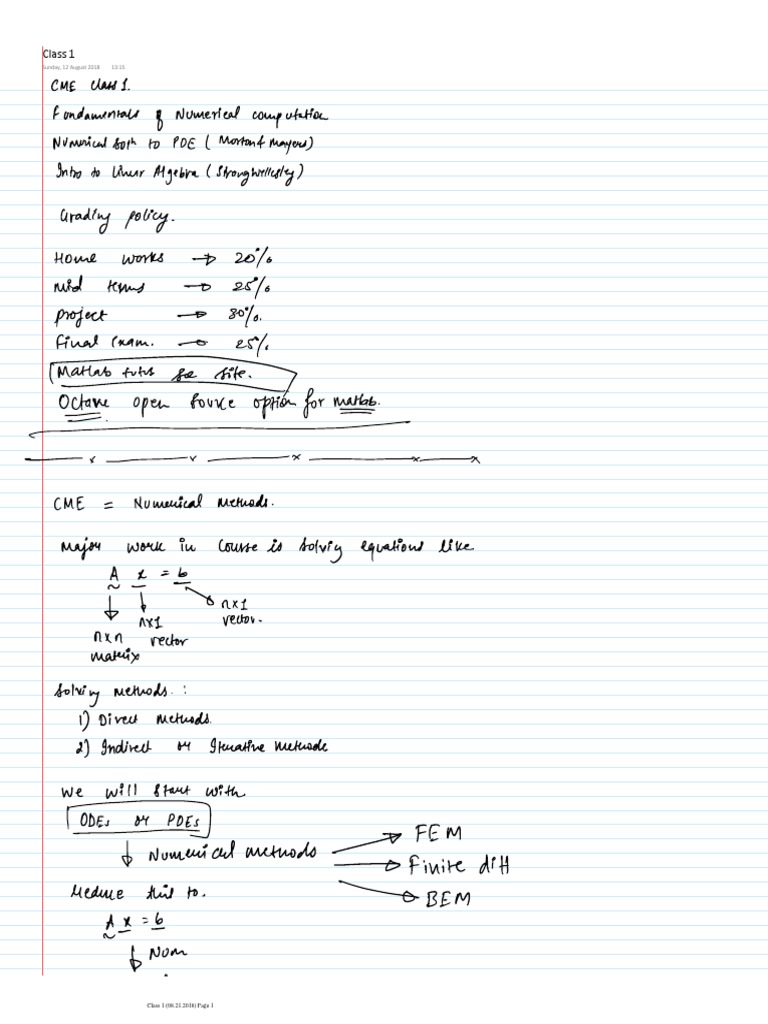 Class 1
Sunday, 12 August 2018 13:15
CME Class 1.
Fundamentals of Numerical computation
Numerical Soln to PDE ( Morton & Mayers)
Intro to Linear Algebra (Strang Wellesley)
Grading policy.
Home works → 20%
Mid terms → 25%
project → 30%.
Final Exam. → 25%
Matlab tuts see site.
Octave open source option for matlab.
CME = Numerical Methods.
Major work in Course is solvig equations like
A x = b
n×1 vector.
n×1 vector
n×n matrix
Solving methods :
1) Direct Methods.
2) Indirect or Iterative Methods
We will start with
ODEs or PDEs
Numerical methods
FEM
Finite diff
BEM
Reduce this to.
A x = b
Num
Class 1 (08.21.2018) Page 1